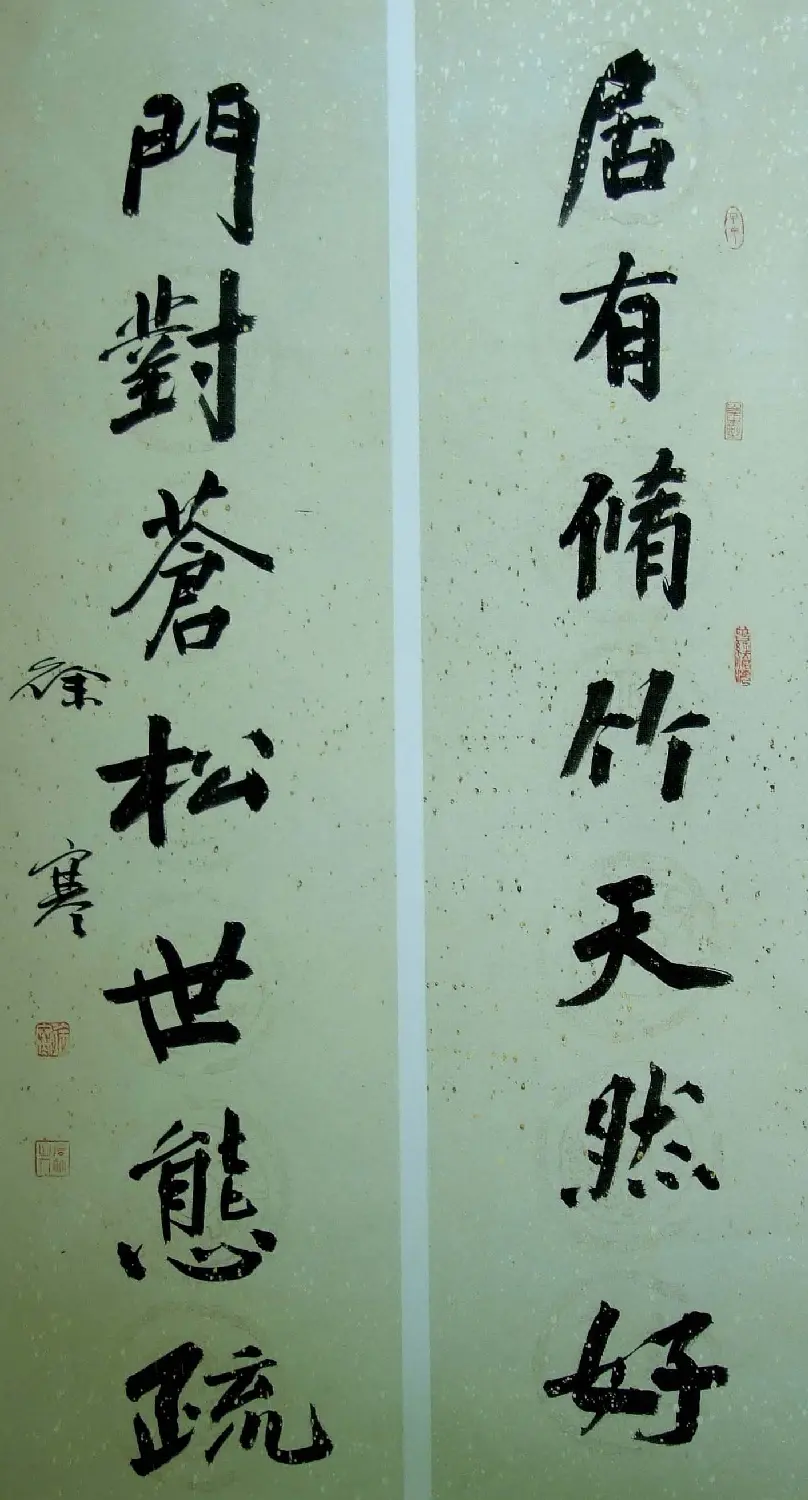 居有脩竹天然好
門對蒼松世態疏
徐寒